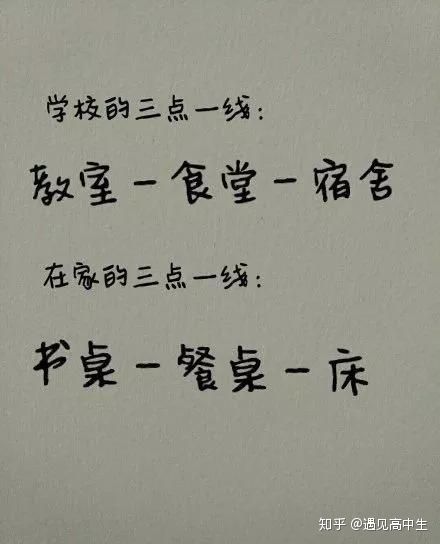 学校的三点一线：
教室一食堂一宿舍
在家的三点一线：
书桌一餐桌一床
知乎 @遇见高中生